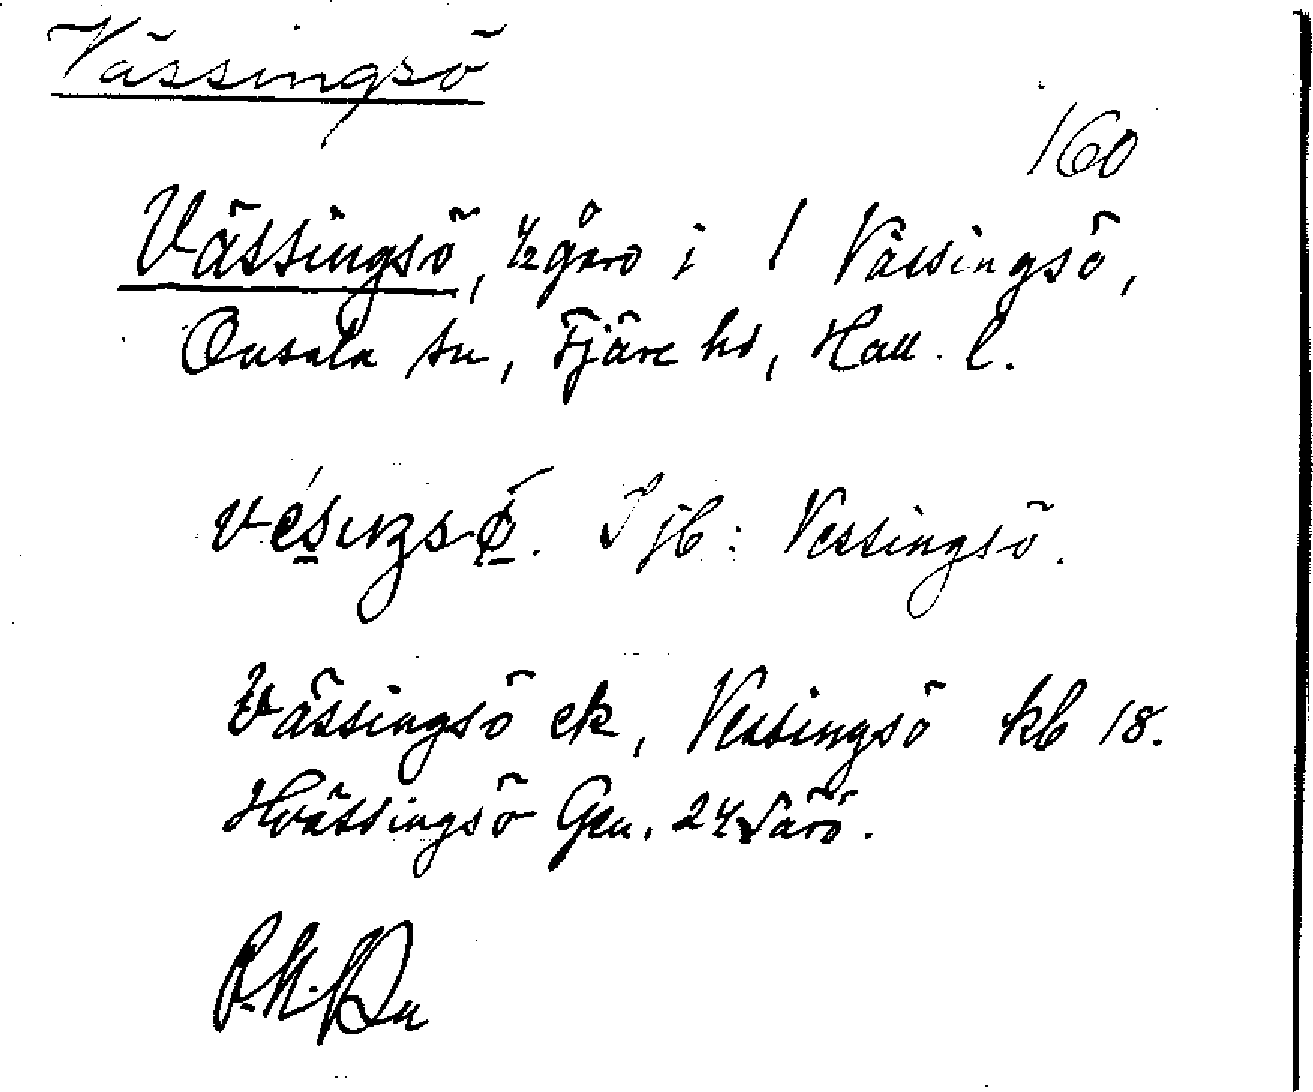 Vässingsö
160
Vässingsö, 1/2 gård i 1 Vässingsö,
Onsala sn, Fjäre hd, Hall. l.
I jb: Vessingsö.
Vässingsö ek, Vessingsö kb 18.
Hvässingsö Gen. 24 Särö.